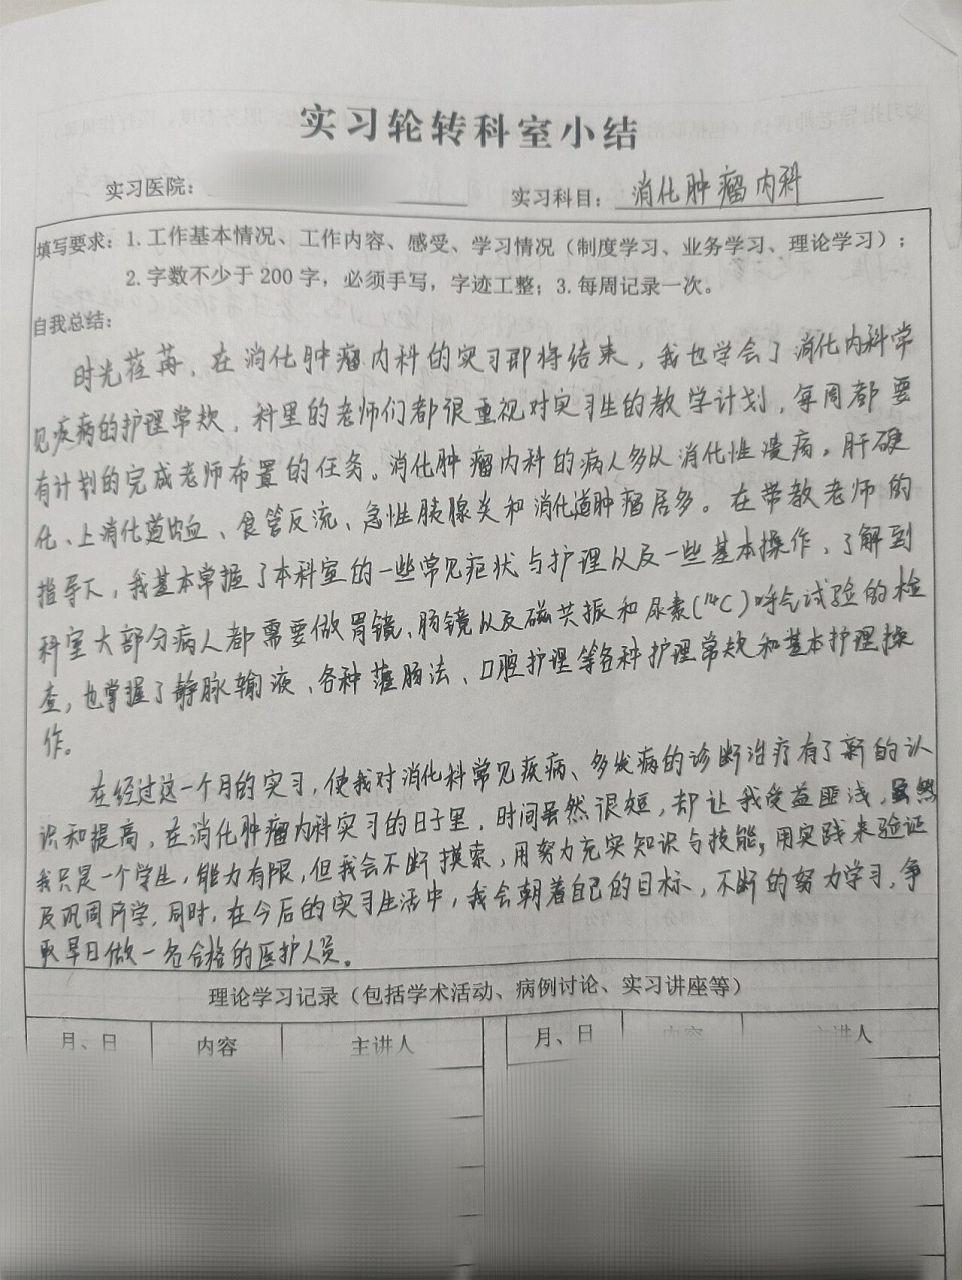 实习轮转科室小结
实习医院：
实习科目：消化肿瘤内科
填写要求：1.工作基本情况、工作内容、感受、学习情况（制度学习、业务学习、理论学习）；
2.字数不少于200字，必须手写，字迹工整；3.每周记录一次。
自我总结：
时光荏苒，在消化肿瘤内科的实习即将结束，我也学会了消化内科常
见疾病的护理常规，科里的老师们都很重视对实习生的教学计划，每周都要
有计划的完成老师布置的任务。消化肿瘤内科的病人多以消化性溃疡，肝硬
化、上消化道出血、食管反流、急性胰腺炎和消化道肿瘤居多。在带教老师的
指导下，我基本掌握了本科室的一些常见症状与护理以及一些基本操作，了解到
科室大部分病人都需要做胃镜、肠镜以及磁共振和尿素(¹⁴C)呼气试验的检
查，也掌握了静脉输液、各种灌肠法、口腔护理等各种护理常规和基本护理操
作。
在经过这一个月的实习，使我对消化科常见疾病、多发病的诊断治疗有了新的认
识和提高，在消化肿瘤内科实习的日子里，时间虽然很短，却让我受益匪浅，虽然
我只是一个学生，能力有限，但我会不断摸索，用努力充实知识与技能，用实践来验证
及巩固所学，同时，在今后的实习生活中，我会朝着自己的目标，不断的努力学习，争
取早日做一名合格的医护人员。
理论学习记录（包括学术活动、病例讨论、实习讲座等）
月、日 内容 主讲人 月、日 内容 主讲人